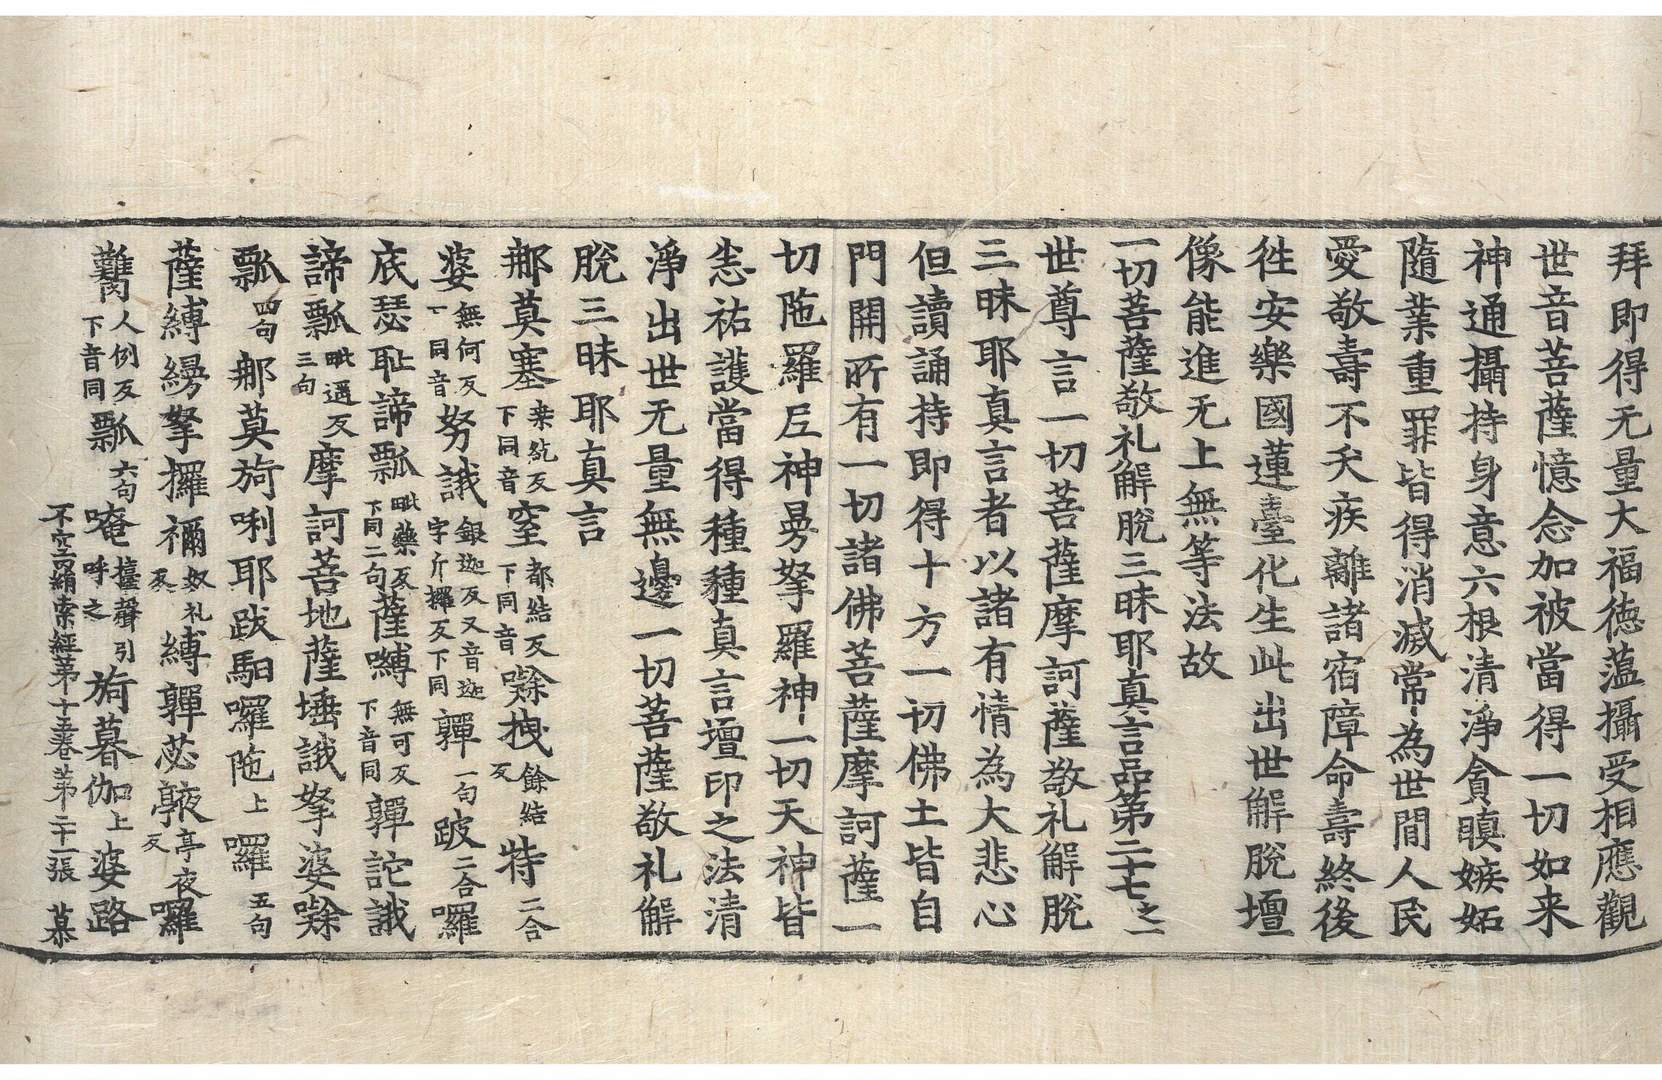 拜即得无量大福德蕰攝受相應觀
世音菩薩憶念加被當得一切如来
神通攝持身意六根清淨貪瞋嫉妬
隨業重罪皆得消滅常為世間人民
愛敬壽不夭疾離諸宿障命壽終後
徃安樂國蓮臺化生此出世解脫壇
像能進无上無等法故
一切菩薩敬礼解脫三昧耶真言品第二十七之一
世尊言一切菩薩摩訶薩敬礼解脫
三昧耶真言者以諸有情為大悲心
但讀誦持即得十方一切佛土皆自
門開所有一切諸佛菩薩摩訶薩一
切陁羅𡰱神曼拏羅神一切天神皆
悉祐護當得種種真言壇印之法清
淨出世无量無邊一切菩薩敬礼解
脫三昧耶真言
那莫塞来紇反下同音窒都結反下同音㗚拽餘結反特二合
婆無何反一同音努誐銀迦反又音迦字斤攞反下同䫂一句跛二合囉
底瑟耻諦瓢毗藥反下同二句薩嚩無可反下音同䫂詑誐
諦瓢毗遥反三句摩訶菩地薩埵誐拏婆㗚
瓢四句那莫旖唎耶跋馹囉陁上囉五句
薩縛縵拏攞禰奴礼反縛䫂苾𩕳亭夜反囉
𧄔人例反下音同瓢六句唵擡聲引呼之旖暮伽上婆路
不空羂索經第十五卷第二十一張 慕